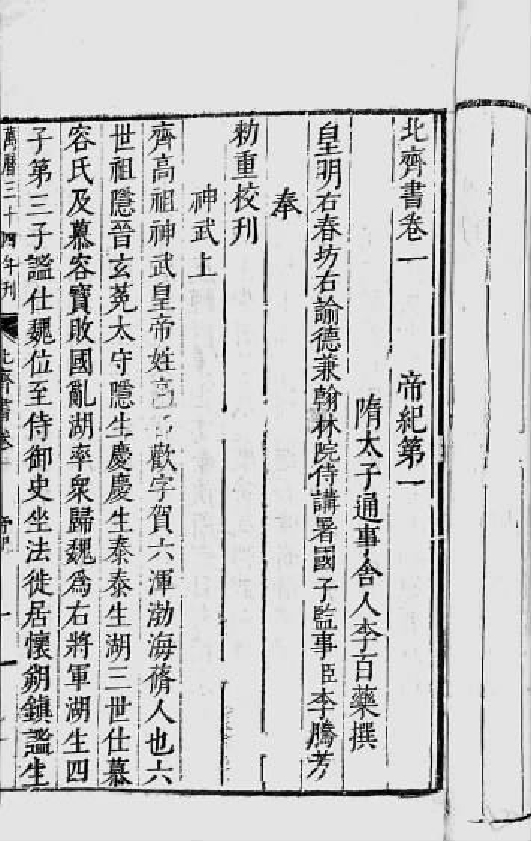 北齊書卷一　帝紀第一
隋太子通事舍人李百藥撰
皇明右春坊右諭德兼翰林院侍講署國子監事臣李騰芳
奉
勑重校刋
神武上
齊高祖神武皇帝姓高名歡字賀六渾渤海蓨人也六
世祖隱晉玄莬太守隱生慶慶生泰泰生湖三世仕慕
容氏及慕容寶敗國亂湖率衆歸魏爲右將軍湖生四
子第三子謐仕魏位至侍御史坐法徙居懷朔鎮謐生
萬曆三十四年刊　北齊書卷一　帝紀　一